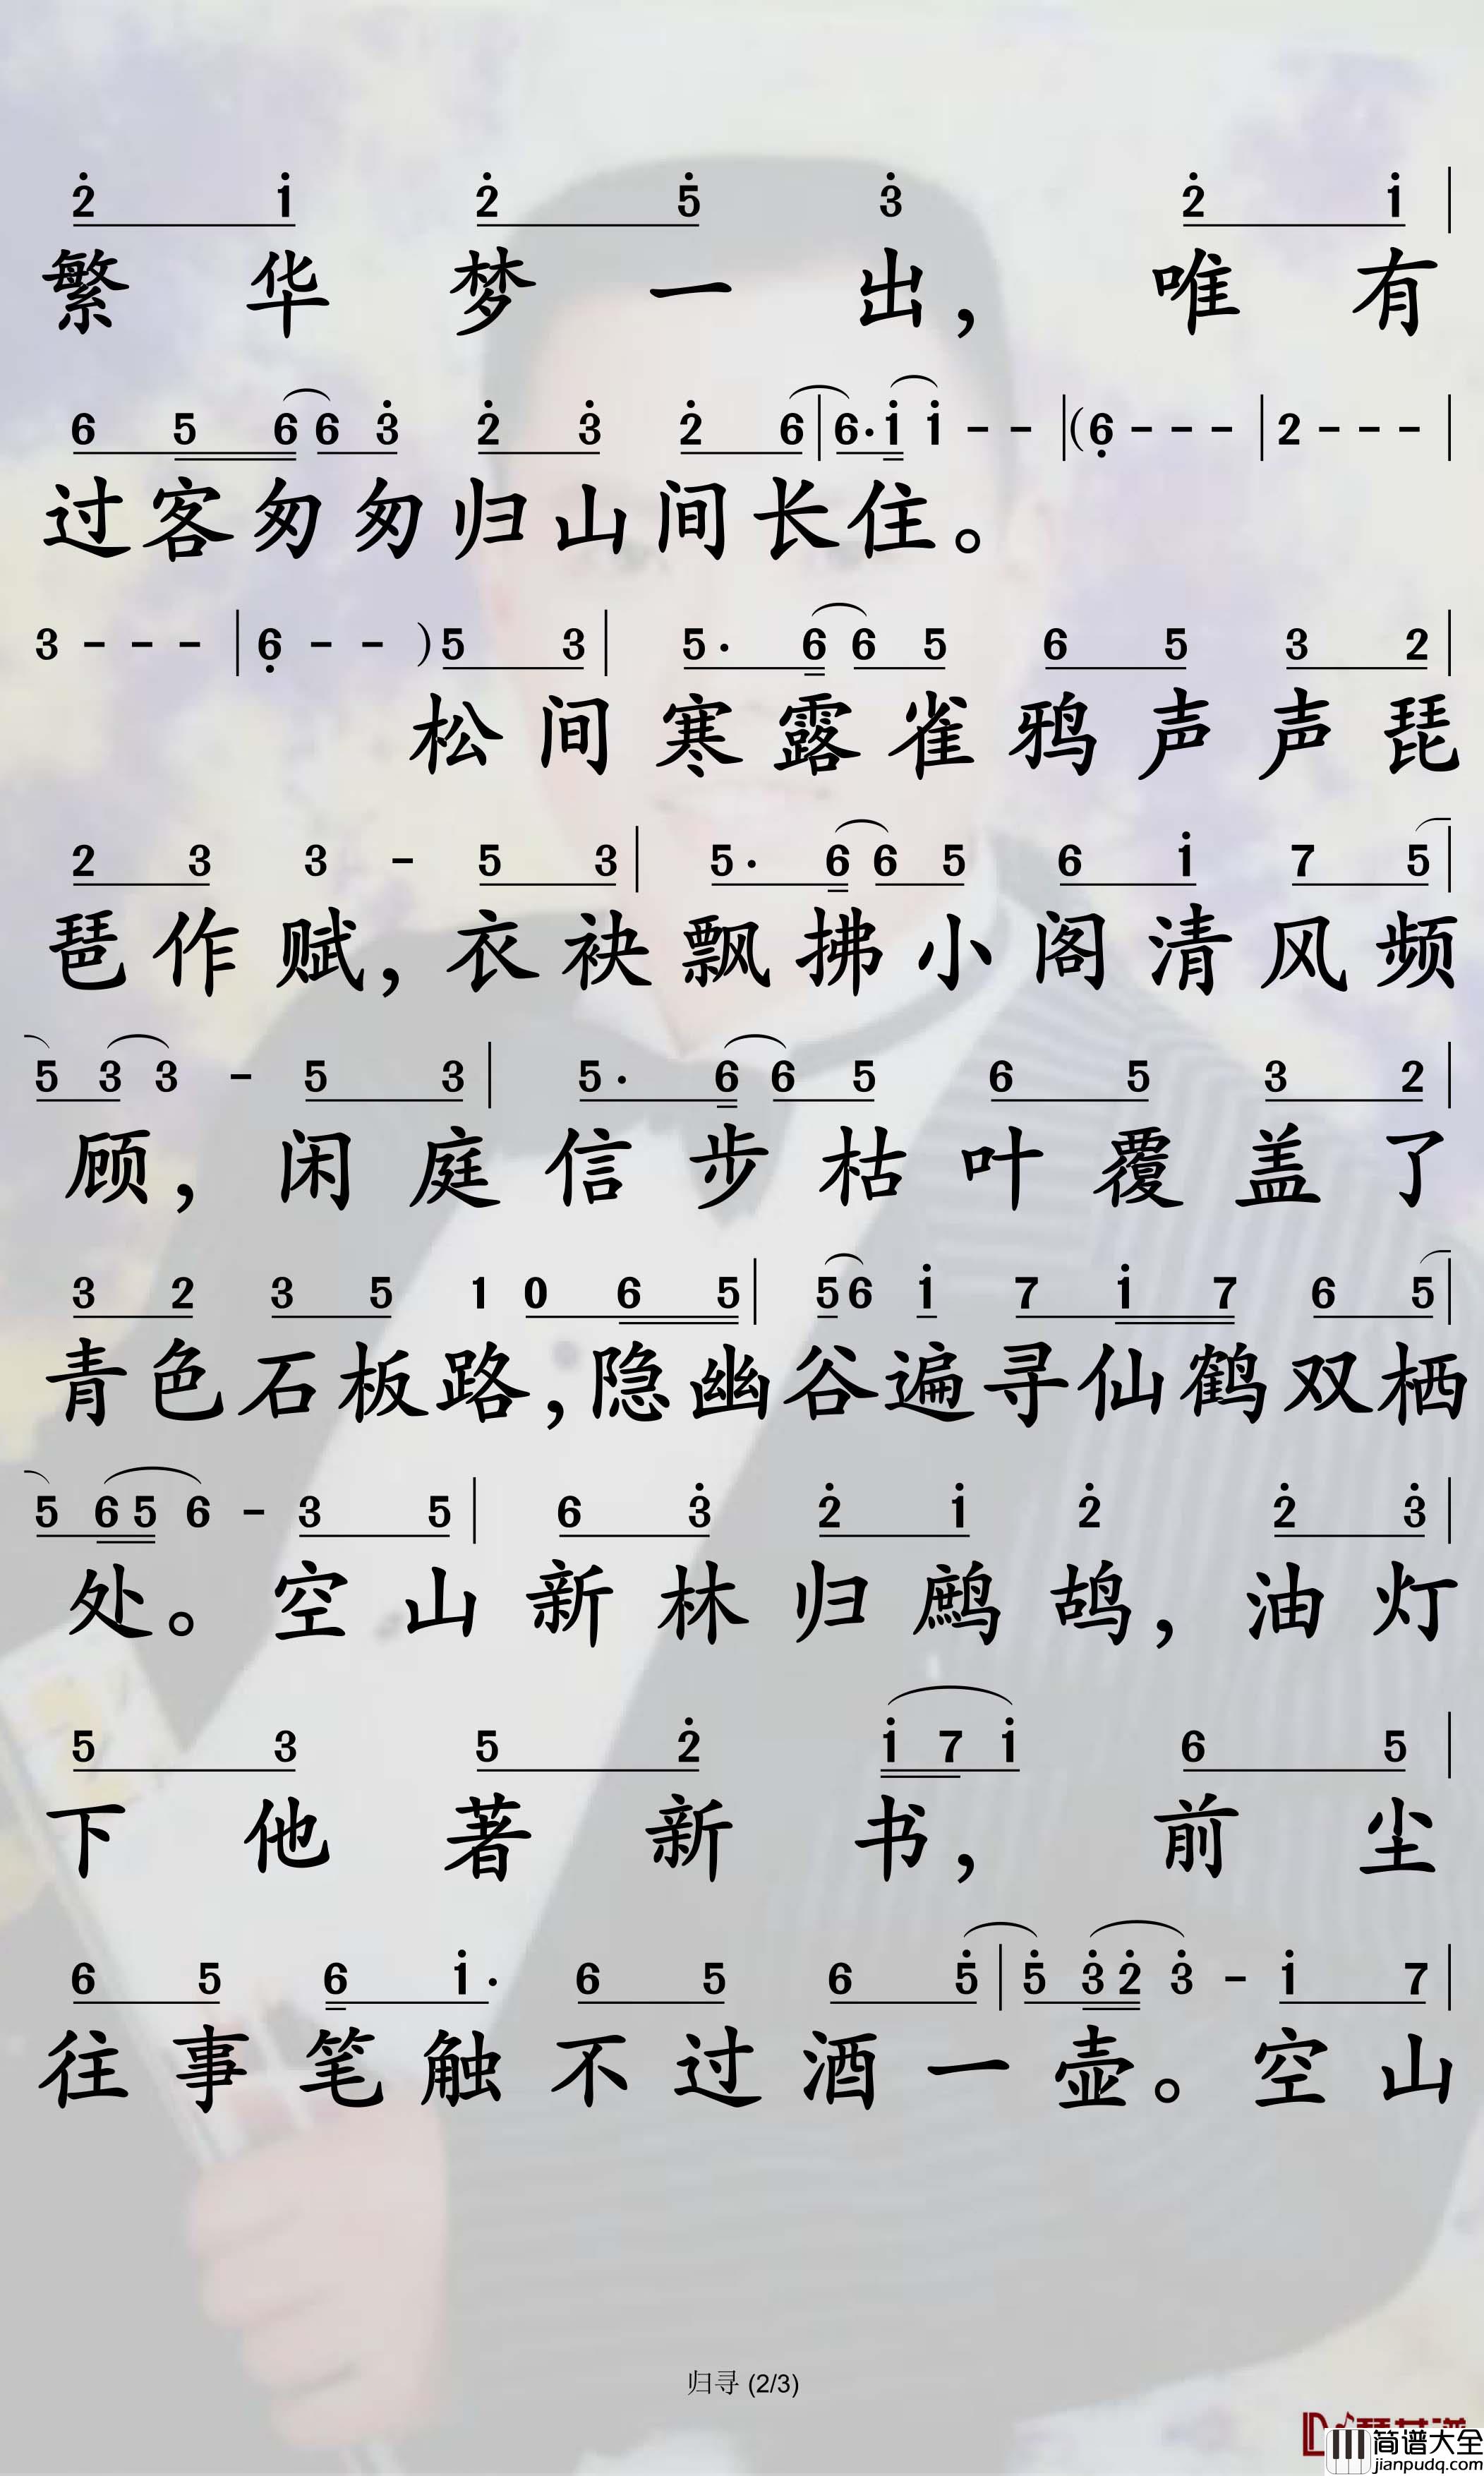 2 1 2 5 3 2 1
繁华梦一出，唯有
6 5 6 6 3 2 3 2 6 | 6· 1 1 - - | ( 6 - - - | 2 - - - |
过客匆匆归山间长住。
3 - - - | 6 - - ) 5 3 | 5· 6 6 5 6 5 3 2 |
松间寒露雀鸦声声琵
2 3 3 - 5 3 | 5· 6 6 5 6 1 7 5 |
琶作赋，衣袂飘拂小阁清风频
5 3 3 - 5 3 | 5· 6 6 5 6 5 3 2 |
顾，闲庭信步枯叶覆盖了
3 2 3 5 1 0 6 5 | 5 6 1 7 1 7 6 5 |
青色石板路，隐幽谷遍寻仙鹤双栖
5 6 5 6 - 3 5 | 6 3 2 1 2 2 3 |
处。空山新林归鹧鸪，油灯
5 3 5 2 1 7 1 6 5 |
下他著新书，前尘
6 5 6 1· 6 5 6 5 | 5 3 2 3 - 1 7 |
往事笔触不过酒一壶。空山
归寻 (2/3)
简谱大全
jianpudq.com